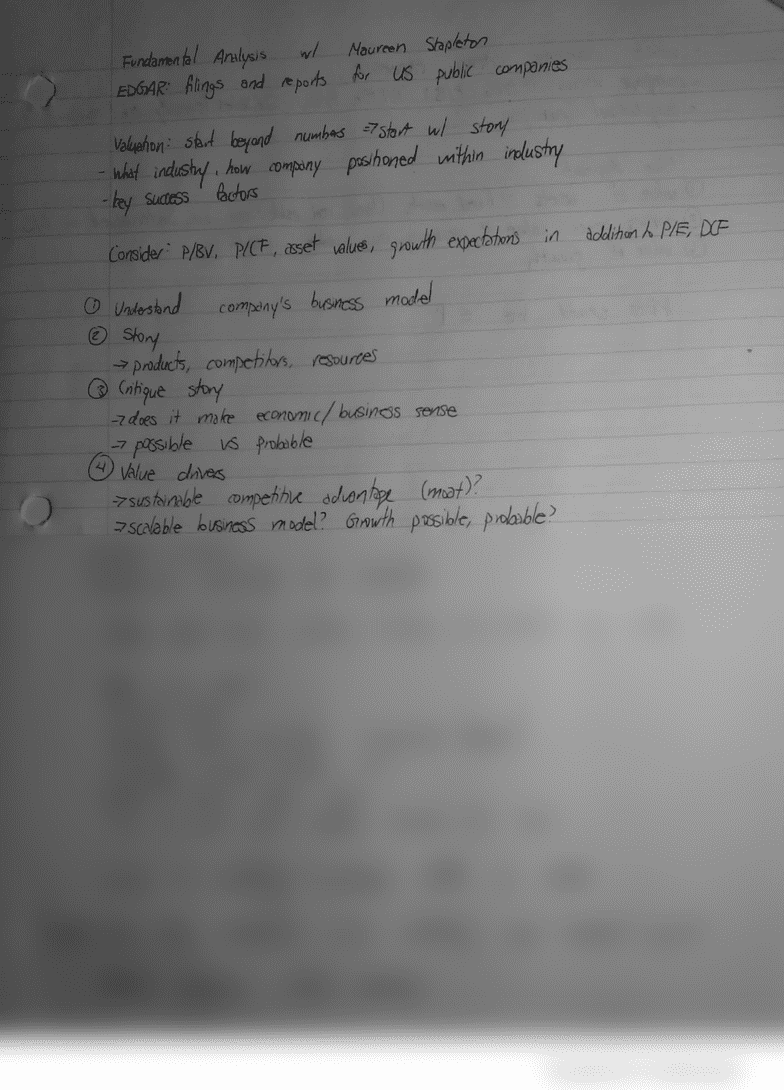 Fundamental Analysis w/ Maureen Stapleton
EDGAR: filings and reports for US public companies
Valuation: start beyond numbers => start w/ story
- what industry, how company positioned within industry
- key success factors
Consider: P/BV, P/CF, asset values, growth expectations in addition to P/E, DCF
① Understand company's business model
② Story
→ products, competitors, resources
③ Critique story
→ does it make economic/business sense
→ possible vs probable
④ Value drivers
→ sustainable competitive advantage (moat)?
→ scalable business model? Growth possible, probable?